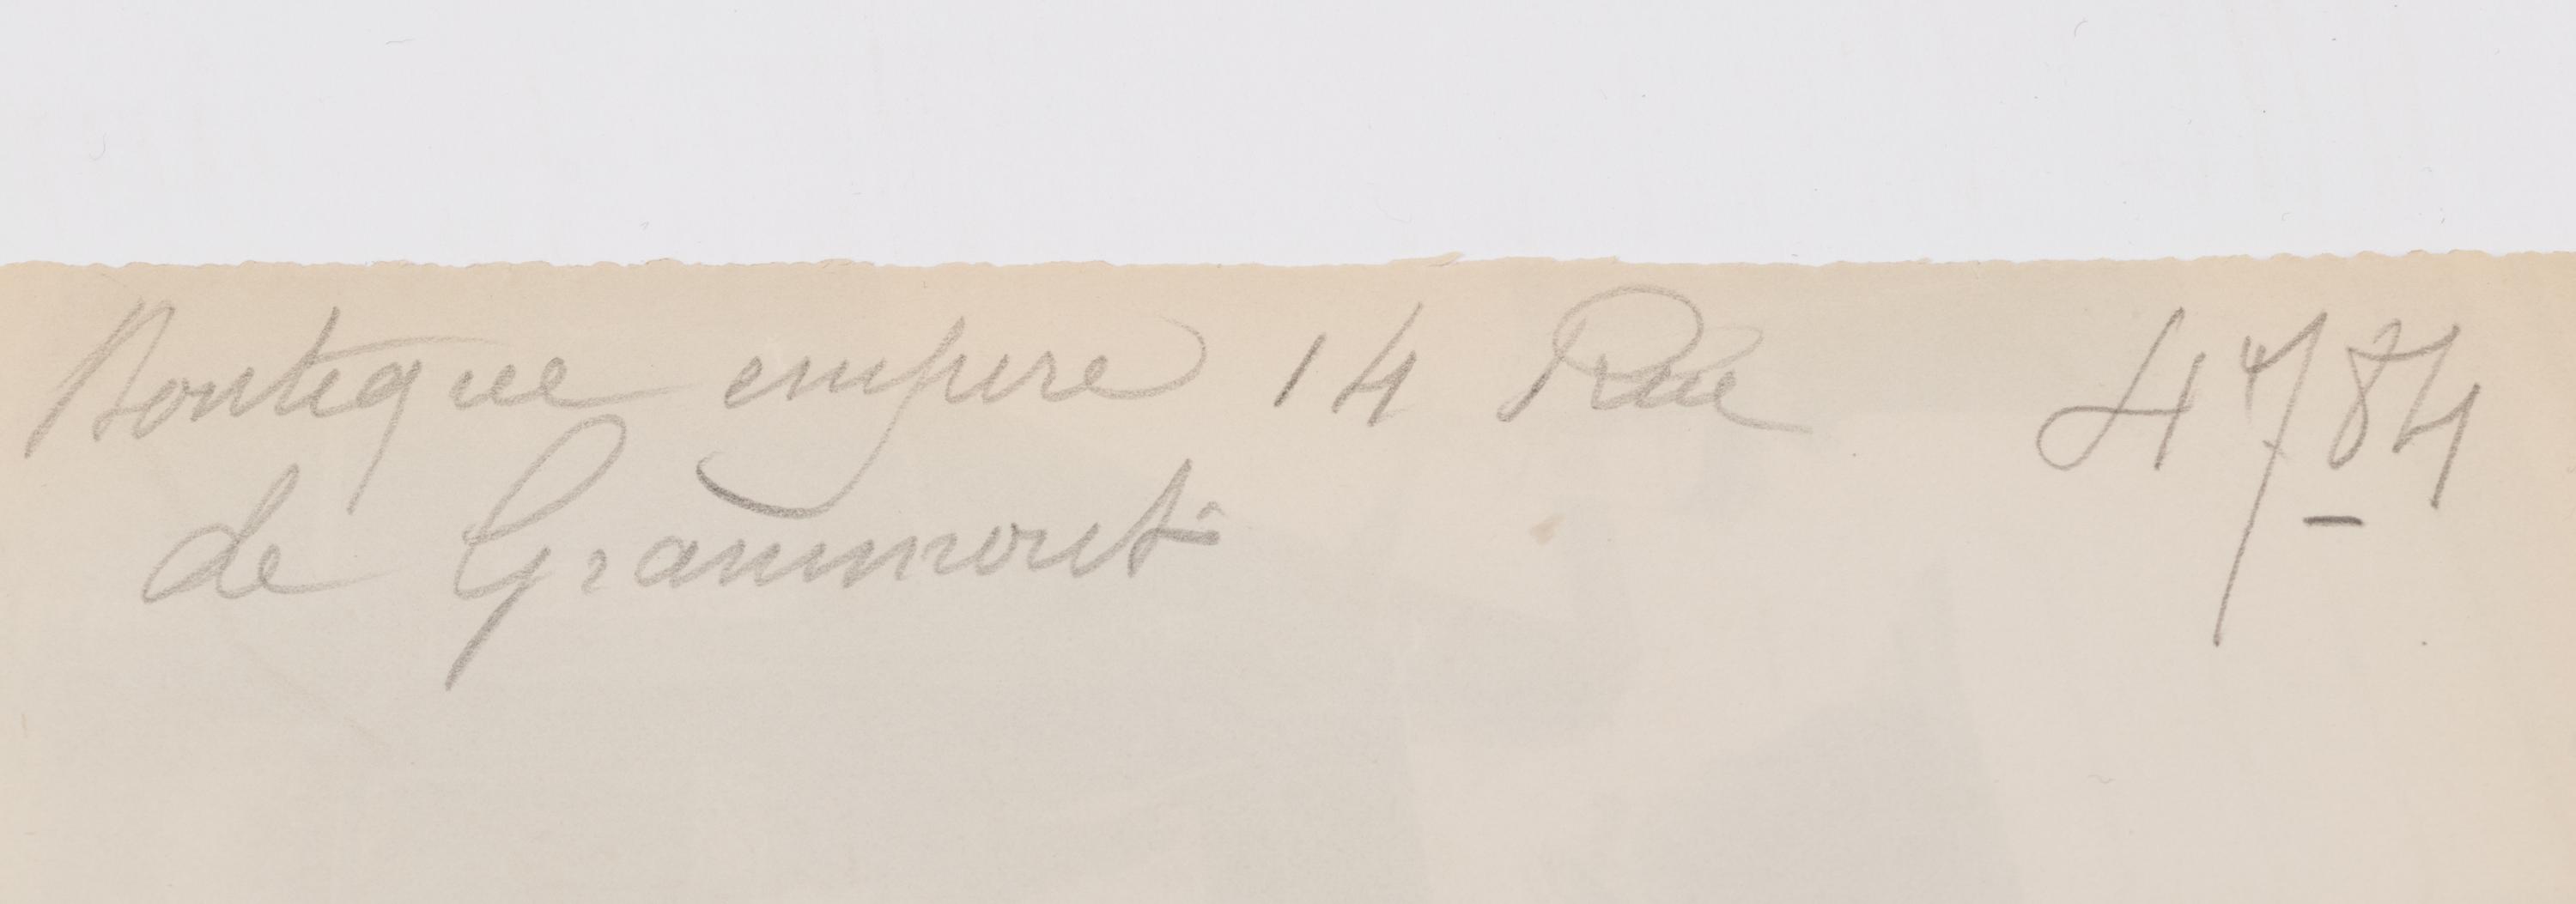 Boutique empire 14 Rue 4784
de Grammont